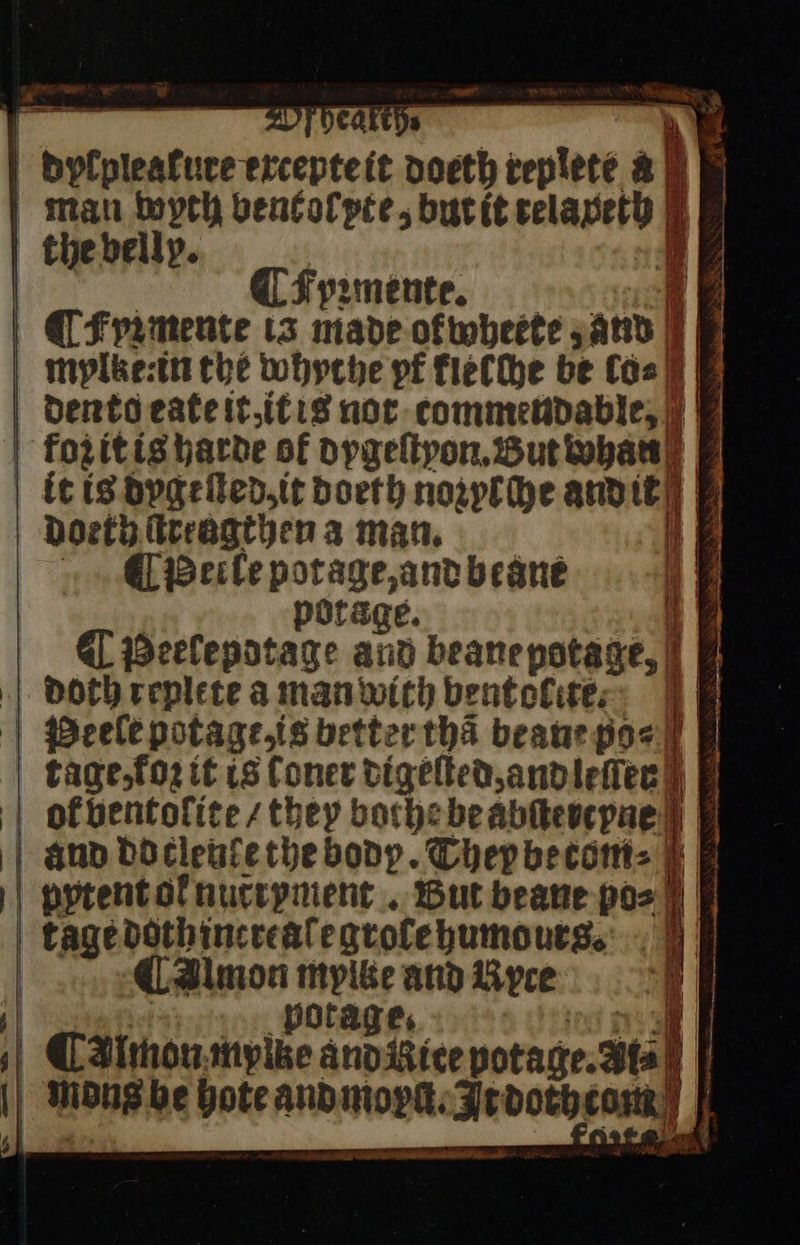 Of healths
dyſpleaſure excepte it doeth replete a
man wyth ventoſyte, but it relaxeth
the belly.
¶ Fyrmente.
¶ Fyrmente is made of wheete, and
mylke: in the whyche yf fleſſhe be ſod⸗
den to eate it, it is not commendable,
for it is harde of dygeſtyon. But whan
it is dygeſted, it doeth noryſſhe and it
doeth ſtreagthen a man.
¶ Peeſe potage, and beane
potage.
¶ Peeſe potage and beane potage,
doth replete a man with ventoſite.
Peeſe potage, is better thã beane po⸗
tage, for it is ſoner digeſted, and leſſer
of ventoſite / they bothe be abſtercyue
and do cleuſe the body. They be com⸗
pytent of nutryment. But beane po⸗
tage doth increaſe groſe humours.
¶ Almon mylke and Ryce
potage.
¶ Almon mylke and Rice potage. Al⸗
mons be hote and moyſt. It doth com
forte